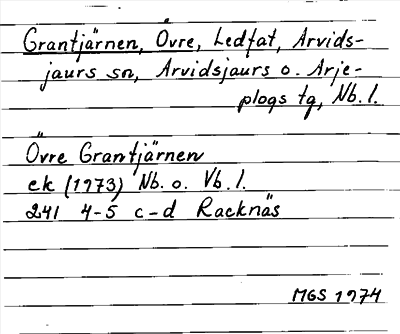 Grantjärnen, Övre, Ledfat, Arvids-
jaurs sn, Arvidsjaurs o. Arje-
plogs tg, Nb. l.
Övre Grantjärnen
ek (1973) Nb. o. Vb. l.
241 4-5 c-d Racknäs
MGS 1974